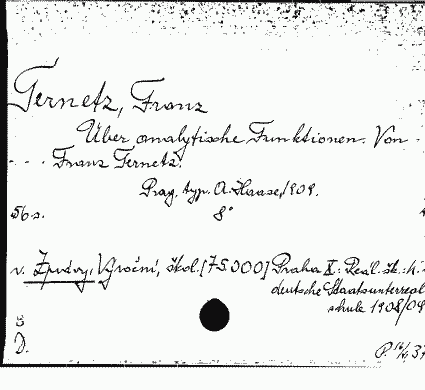 Ternetz, Franz
Über analytische Funktionen. Von
. . . Franz Ternetz.
Prag, typ. A. Haase, 1909.
56 s. 8°
v. Zprávy, Výroční, škol. [75.000] Praha X: Real. šk.: k.
deutsche Staatsunterreal
schule 1908/09
D.